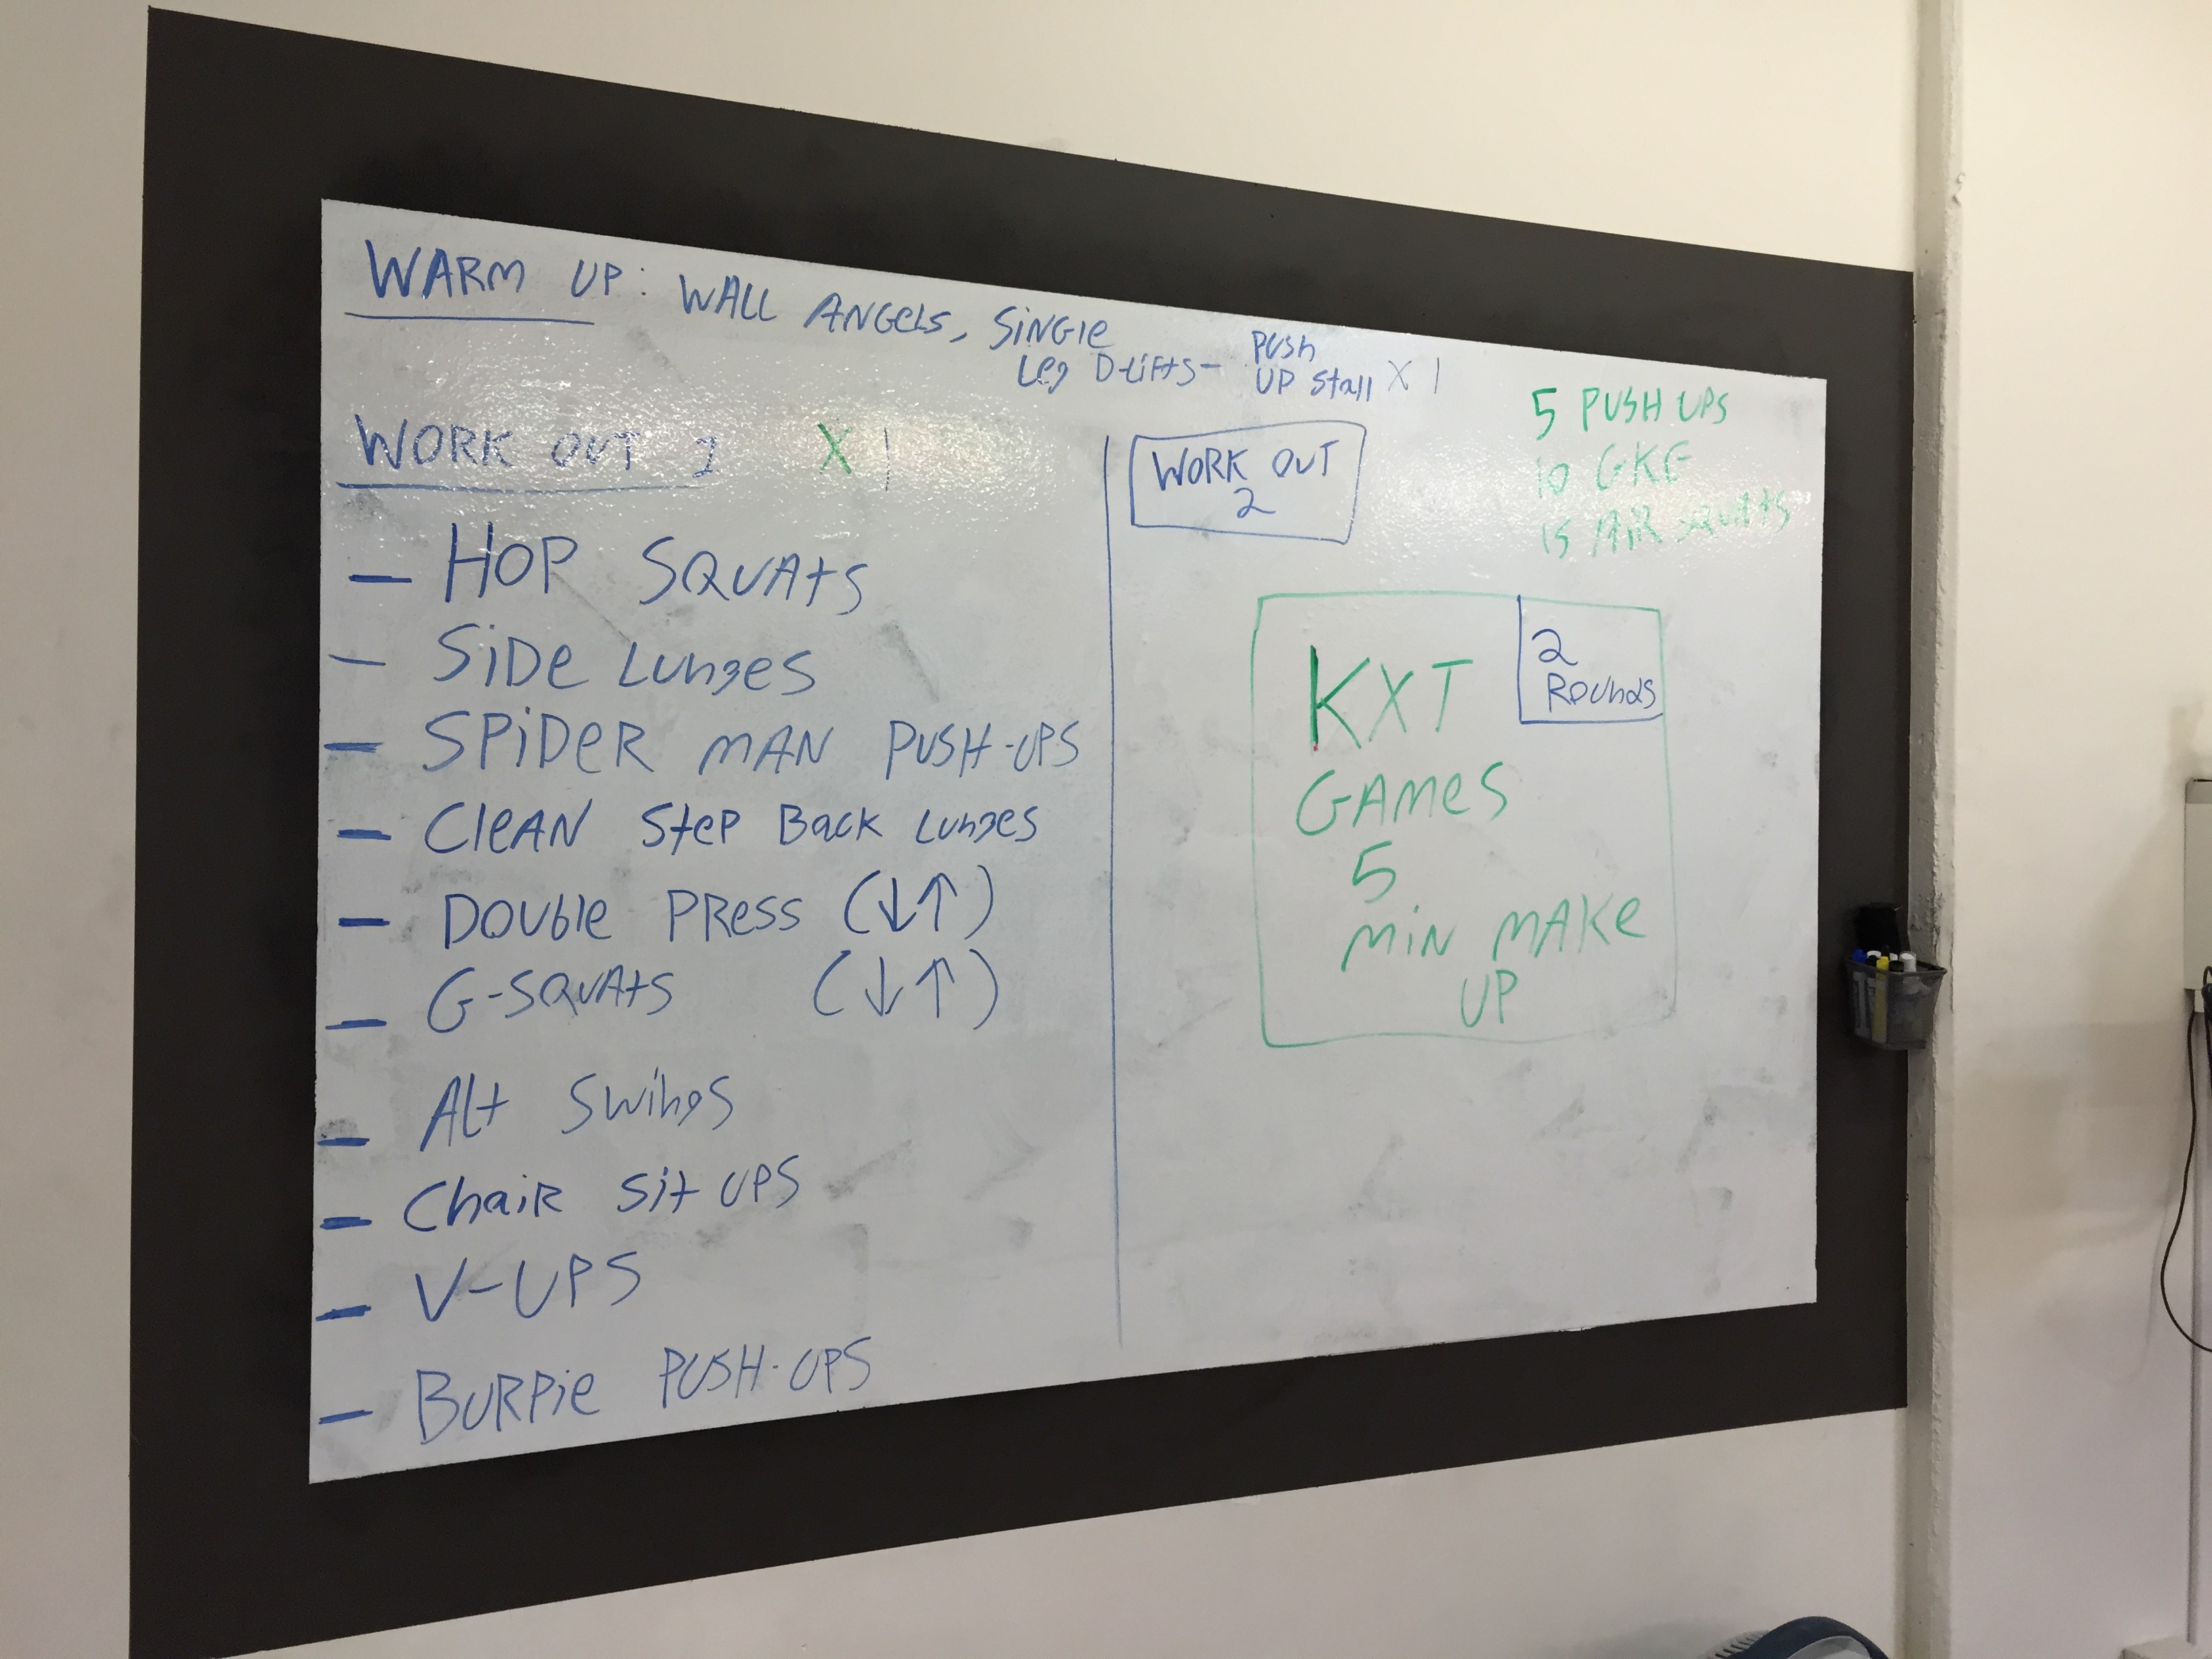 WARM UP: WALL ANGELS, SiNGle
Leg D-liftS- PUSH
UP Stall X 1
WORK OUT 1 X 1
- HOP SQUAtS
- SiDe LungeS
- SPiDeR mAN PUSH-UPS
- CleAN SteP Back Lunges
- DOUble PRess (↓↑)
- G-SQUAtS (↓↑)
- Alt Swings
- ChaiR Sit UPS
- V-UPS
- BURPie PUSH-UPS
WORK OUT
2
5 PUSH UPS
10 GKE
15 AiR SQUAtS
KXT
GAmeS
5
miN mAKe
UP
2
ROUNDS